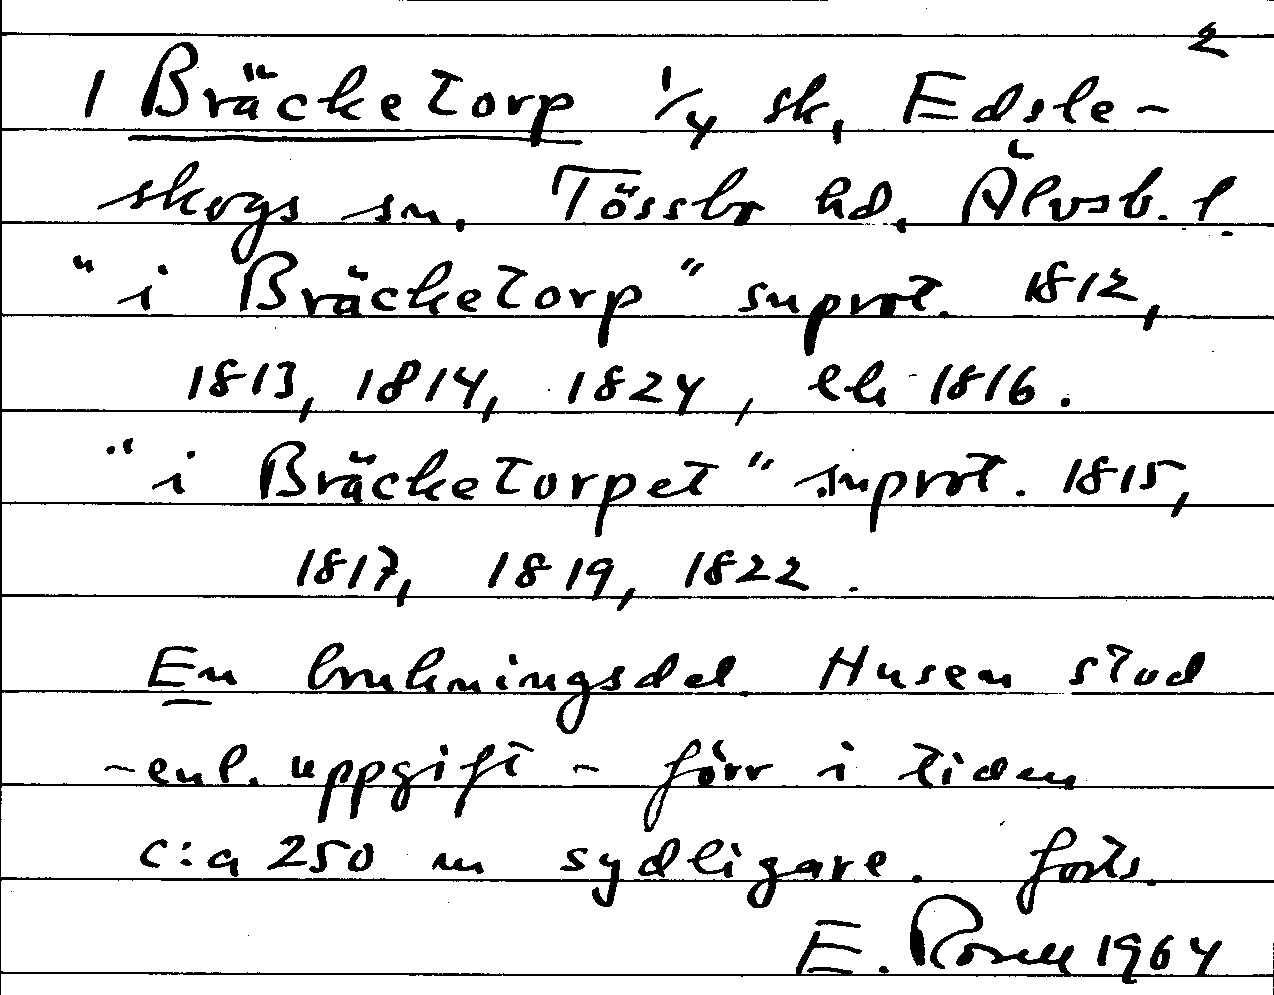 2
1 Bräcketorp 1/4 sk, Edsle-
skogs sn, Tössbo hd, Älvsb. l.
"i Bräcketorp" snprot. 1812,
1813, 1814, 1824, lh 1816.
"i Bräcketorpet" snprot. 1815,
1817, 1819, 1822.
En brukningsdel. Husen stod
- enl. uppgift - förr i tiden
c:a 250 m sydligare. forts.
E. Rosell 1964